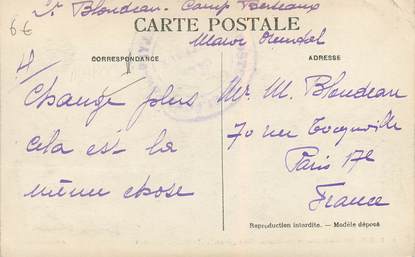 6€
Blondeau. Camp Berteaux
CARTE POSTALE
Maroc Oriental
CORRESPONDANCE
ADRESSE
4/
Change plus
cela est la
même chose
Mr. M. Blondeau
70 rue Tocqueville
Paris 17e
France
Reproduction interdite. — Modèle déposé